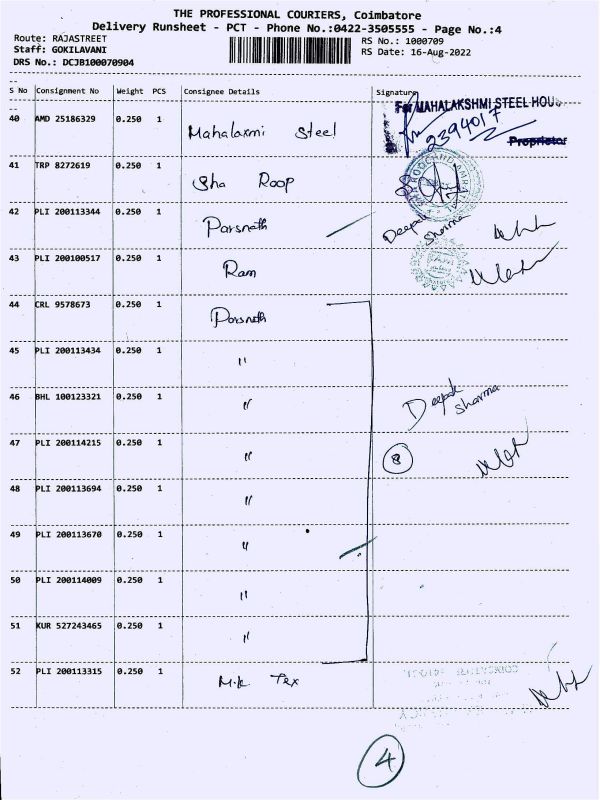 THE PROFESSIONAL COURIERS, Coimbatore
Delivery Runsheet - PCT - Phone No.:0422-3505555 - Page No.:4
Route: RAJASTREET
Staff: GOKILAVANI
DRS No.: DCJB100070904
RS No.: 1000709
RS Date: 16-Aug-2022
S No Consignment No Weight PCS Consignee Details Signature
40 AMD 25186329 0.250 1 Mahalaxmi Steel
For MAHALAKSHMI STEEL HOUS
2394017
Proprietor
41 TRP 8272619 0.250 1 Sha Roop
42 PLI 200113344 0.250 1 Parsnath Deepak Sharma
43 PLI 200100517 0.250 1 Ram
44 CRL 9578673 0.250 1 Parsnath
45 PLI 200113434 0.250 1 "
46 BHL 100123321 0.250 1 " Deepak Sharma
47 PLI 200114215 0.250 1 " 8
48 PLI 200113694 0.250 1 "
49 PLI 200113670 0.250 1 "
50 PLI 200114009 0.250 1 "
51 KUR 527243465 0.250 1 "
52 PLI 200113315 0.250 1 M.K Tex
4